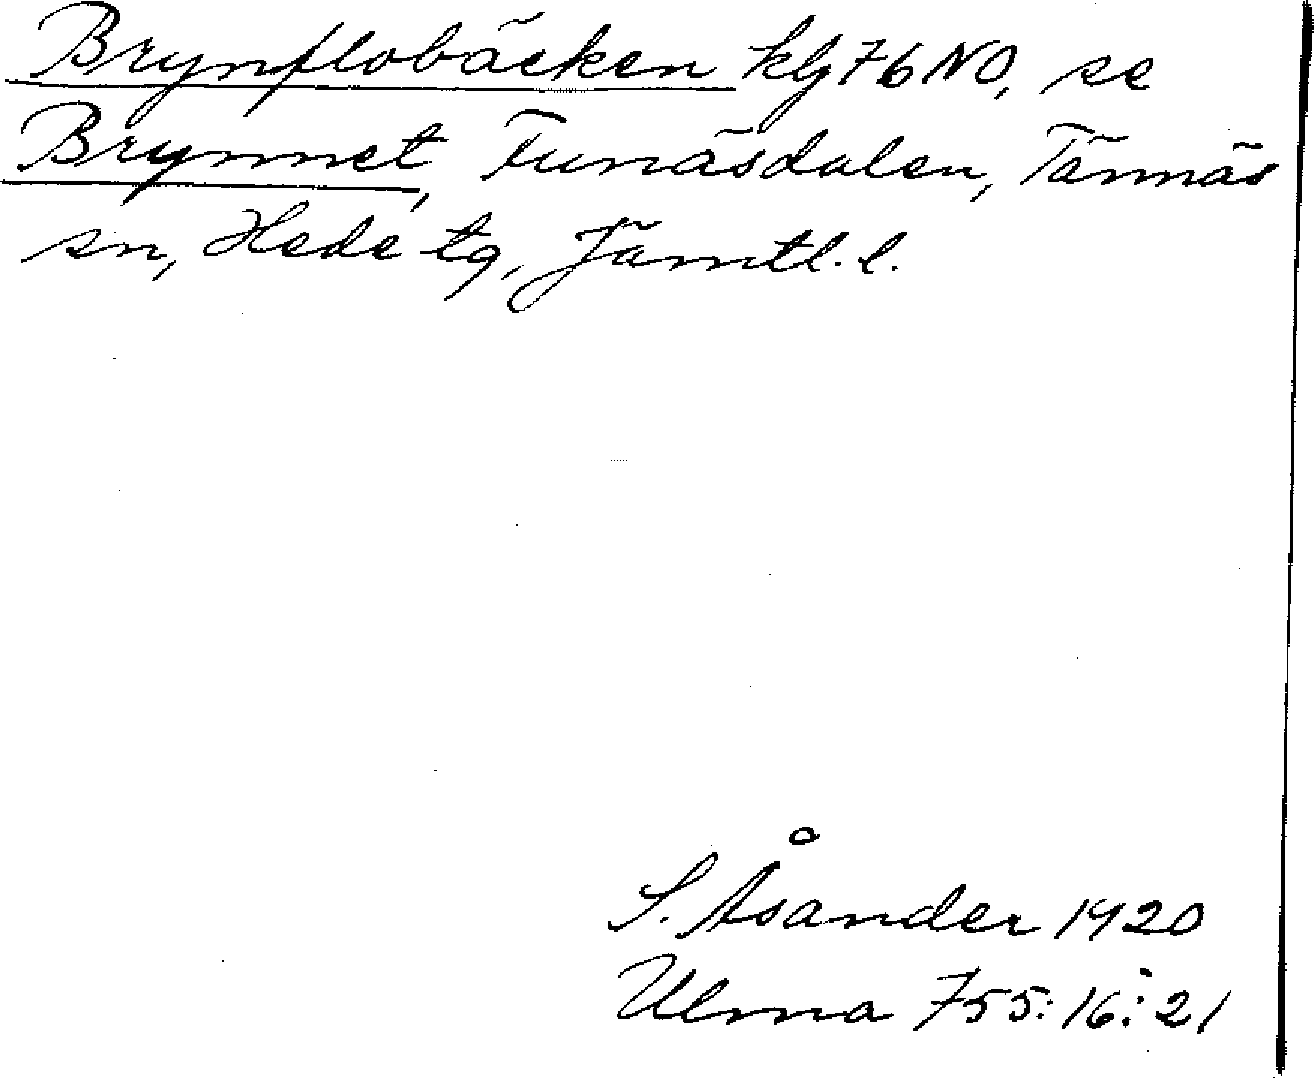 Brynflobäcken kbl 76 NO, se
Brynnet, Funäsdalen, Tännäs
sn, Hede tg, Jämtl. l.
S. Åsander 1920
Ulma 755:16:21